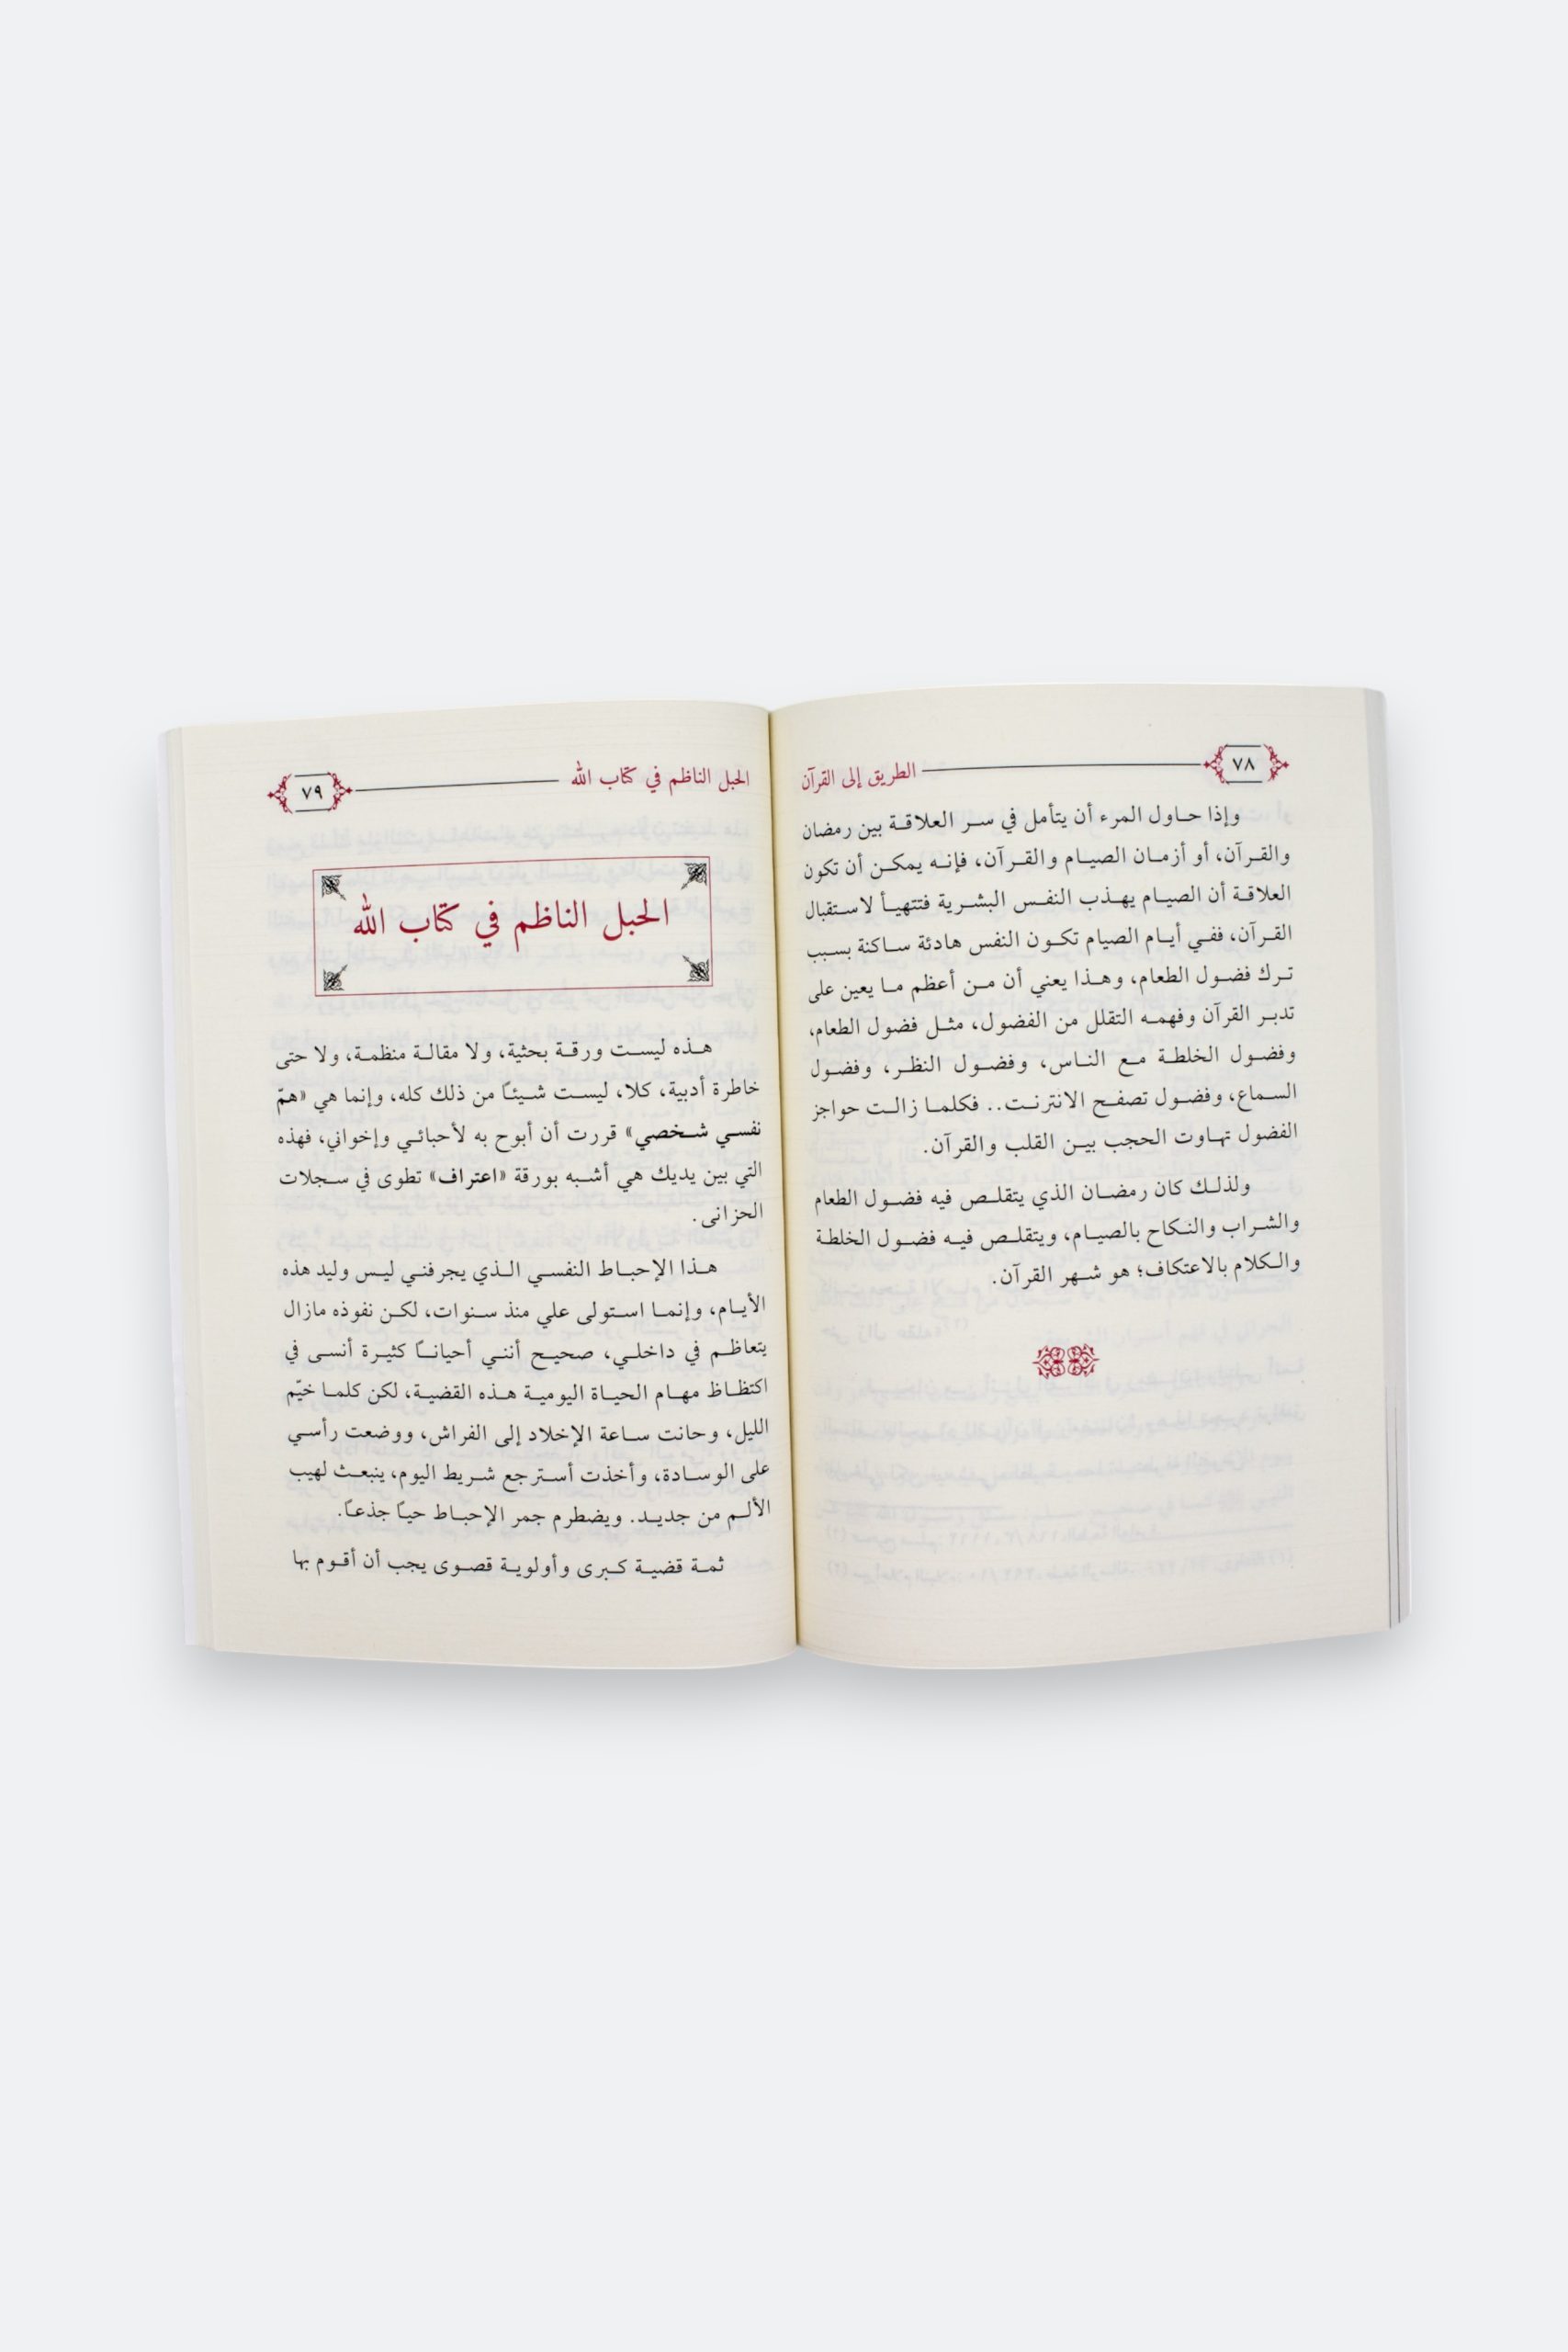 ٧٨
الطريق إلى القرآن
وإذا حاول المرء أن يتأمل في سر العلاقة بين رمضان
والقرآن، أو أزمان الصيام والقرآن، فإنه يمكن أن تكون
العلاقة أن الصيام يهذب النفس البشرية فتتهيأ لاستقبال
القرآن، ففي أيام الصيام تكون النفس هادئة ساكنة بسبب
ترك فضول الطعام، وهذا يعني أن من أعظم ما يعين على
تدبر القرآن وفهمه التقلل من الفضول، مثل فضول الطعام،
وفضول الخلطة مع الناس، وفضول النظر، وفضول
السماع، وفضول تصفح الانترنت.. فكلما زالت حواجز
الفضول تهاوت الحجب بين القلب والقرآن.
ولذلك كان رمضان الذي يتقلص فيه فضول الطعام
والشراب والنكاح بالصيام، ويتقلص فيه فضول الخلطة
والكلام بالاعتكاف؛ هو شهر القرآن.
الحبل الناظم في كتاب الله
٧٩
الحبل الناظم في كتاب الله
هذه ليست ورقة بحثية، ولا مقالة منظمة، ولا حتى
خاطرة أدبية، كلا، ليست شيئاً من ذلك كله، وإنما هي «همّ
نفسي شخصي» قررت أن أبوح به لأحبائي وإخواني، فهذه
التي بين يديك هي أشبه بورقة «اعتراف» تطوى في سجلات
الحزانى.
هذا الإحباط النفسي الذي يجرفني ليس وليد هذه
الأيام، وإنما استولى علي منذ سنوات، لكن نفوذه مازال
يتعاظم في داخلي، صحيح أنني أحياناً كثيرة أنسى في
اكتظاظ مهام الحياة اليومية هذه القضية، لكن كلما خيّم
الليل، وحانت ساعة الإخلاد إلى الفراش، ووضعت رأسي
على الوسادة، وأخذت أسترجع شريط اليوم، ينبعث لهيب
الألم من جديد. ويضطرم جمر الإحباط حياً جذعاً.
ثمة قضية كبرى وأولوية قصوى يجب أن أقوم بها